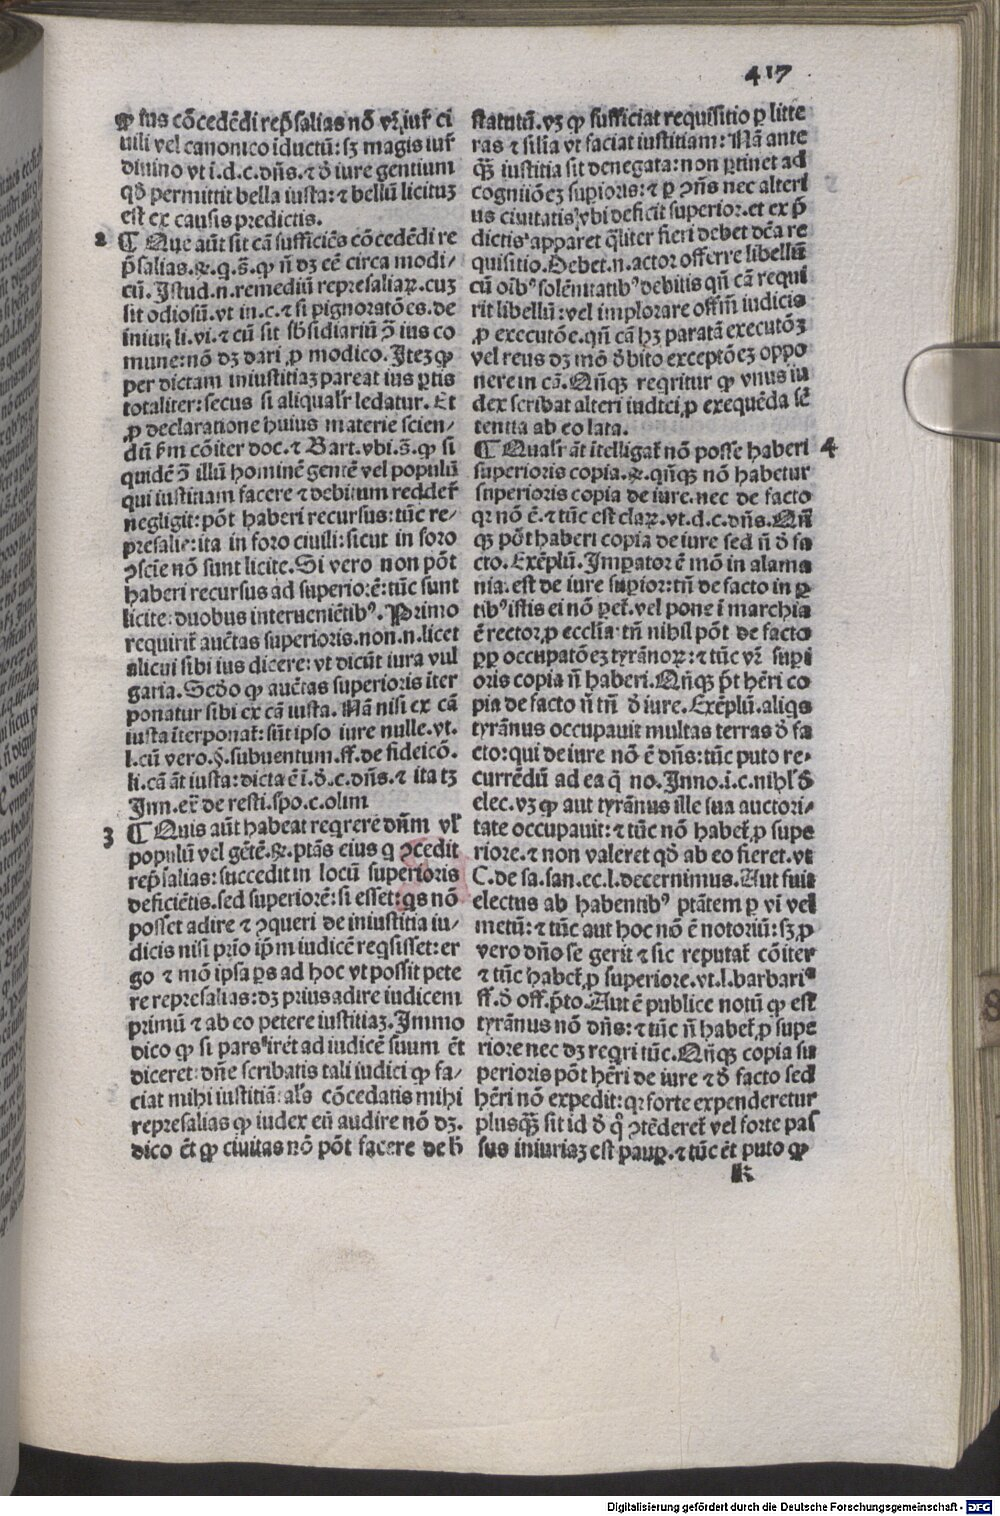 417
ꝙ ius cōcedēdi rep̄salias nō vr̄ iur̄ ci
uili vel canonico iductū: sꝫ magis iur̄
diuino vt i.d.c.dn̄s.⁊ ꝺ̄ iure gentium
qd̄ permittit bella iusta: ⁊ bellū licituꝫ
est ex causis predictis.
2 ¶ Que aūt sit cā sufficiēs cōcedēdi re
p̄salias.⁊.q.s̄.ꝙ n̄ dꝫ eē circa modi⸗
cū. Istud.n.remediū represaliaꝝ.cuꝫ
sit odiosū.vt in.c.⁊ si pignoratōes.de
iniur̄.li.vi.⁊ cū sit sb̄sidiariū ꝯ ius co
mune: nō dꝫ dari ꝓ modico. Iteꝫ ꝙ
per dictam iniustitiaꝫ pareat ius ꝑtis
totaliter: secus si aliqualr̄ ledatur. Et
ꝓ declaratione huius materie scien⸗
dū s̄m cōiter doc.⁊ Bart.vbi.s̄.ꝙ si
quidē ꝯ illū hominē gentē vel populū
qui iustitiam facere ⁊ debitum redder̄
negligit: pōt haberi recursus: tūc re⸗
presalie: ita in foro ciuili: sicut in foro
ꝯscīe nō sunt licite. Si vero non pōt
haberi recursus ad superiorē: tūc sunt
licite: duobus interueniētibꝰ. Primo
requirit̄ auctas superioris.non.n.licet
alicui sibi ius dicere: vt dicūt iura vul
garia. Scd̄o ꝙ auctas superioris iter
ponatur sibi ex cā iusta. Nā nisi ex cā
iusta īterponat̄: sūt ipso iure nulle.vt.
l.cū vero.§.subuentum.ff.de fideicō.
li.cā āt iusta: dicta ē ī.ꝺ̄.c.dn̄s.⁊ ita tꝫ
Inn.ex̄ de resti.spo.c.olim
3 ¶ Quis aūt habeat reqrere dn̄m vl̄
populū vel gētē.⁊.ptās eius q ꝯcedit
rep̄salias: succedit in locū superioris
deficiētis.sed superiorē: si esset: qs nō
posset adire ⁊ ꝯqueri de iniustitia iu⸗
dicis nisi prīo ip̄m iudicē reqsisset: er
go ⁊ mō ipsa ꝑs ad hoc vt possit pete
re represalias: dꝫ prius adire iudicem
primū ⁊ ab eo petere iustitiaꝫ. Immo
dico ꝙ si pars iret ad iudicē suum ēt
diceret: dn̄e scribatis tali iudici ꝙ fa⸗
ciat mihi iustitiā: al̄s cōcedatis mihi
represalias ꝙ iudex eū audire nō dꝫ.
dico ēt ꝙ ciuitas nō pōt facere de h̄
statutū.vꝫ ꝙ sufficiat requisitio ꝑ litte
ras ⁊ silia vt faciat iustitiam: Nā ante
qꝫ̄ iustitia sit denegata: non ꝑtinet ad
cogniiōeꝫ suꝑioris: ⁊ ꝑ ꝯn̄s nec alteri
us ciuitatis vbi deficit superior.et ex p̄
dictis apparet qliter fieri debet dc̄a re
quisitio. Debet.n.actor offerre libellū
cū oībꝰ solēnitatibꝰ debitis qn̄ cā requi
rit libellū: vel implorare offm̄ iudicis
ꝓ executōe.qn̄ cā hꝫ paratā executōꝫ
vel reus dꝫ mō ꝺ̄bito exceptōeꝫ oppo
nere in cā. Qn̄qꝫ reqritur ꝙ vnus iu
dex scribat alteri iudici ꝓ exequēda sē
tentia ab eo lata.
4 ¶ Qualr̄ āt itelligat̄ nō posse haberi
superioris copia.⁊.qn̄qꝫ nō habetur
superioris copia de iure.nec de facto
qꝛ nō ē.⁊ tūc est claꝝ.vt.d.c.dn̄s. Qn̄
qꝫ pōt haberi copia de iure sed n̄ ꝺ̄ fa
cto. Exēplū. Imꝑator ē mō in alama
nia.est de iure suꝑior: tn̄ de facto in ꝑ
tibꝰ istis ei nō ꝑet̄.vel pone ī marchia
ē rector ꝓ ecclīa tn̄ nihil pōt de facto
ꝓꝑ occupatōeꝫ tyrānoꝝ: ⁊ tūc vr̄ supi
oris copia n̄ haberi. Qn̄qꝫ p̄t hēri co
pia de facto n̄ tn̄ ꝺ̄ iure. Exēplū.aliqs
tyrānus occupauit multas terras ꝺ̄ fa
cto: qui de iure nō ē dn̄s: tūc puto re⸗
currēdū ad ea q̄ no. Inno.i.c.nihl̄ ꝺ̄
elec.vꝫ ꝙ aut tyrānus ille sua auctori⸗
tate occupauit: ⁊ tūc nō habet̄ ꝓ supe
riore.⁊ non valeret qd̄ ab eo fieret.vt
C.de sa.san.ec.l.decernimus. Aut fuit
electus ab habentibꝰ ptātem ꝑ vī vel
metū: ⁊ tūc aut hoc nō ē notoriū: sꝫ ꝓ
vero dn̄o se gerit ⁊ sic reputat̄ cōiter
⁊ tūc habet̄ ꝓ superiore.vt.l.barbariꝰ
ff.ꝺ̄ off.p̄to. Aut ē publice notū ꝙ est
tyrānus nō dn̄s: ⁊ tūc n̄ habet̄ ꝓ supe
riore nec dꝫ reqri tūc. Qn̄qꝫ copia su
perioris pōt hēri de iure ⁊ ꝺ̄ facto sed
hēri nō expedit: qꝛ forte expenderetur
plusqꝫ̄ sit id ꝺ̄ q̄ ꝯtēderet̄ vel forte pas
sus iniuriaꝫ est pauꝑ.⁊ tūc ēt puto ꝙ
k
Digitalisierung gefördert durch die Deutsche Forschungsgemeinschaft - DFG